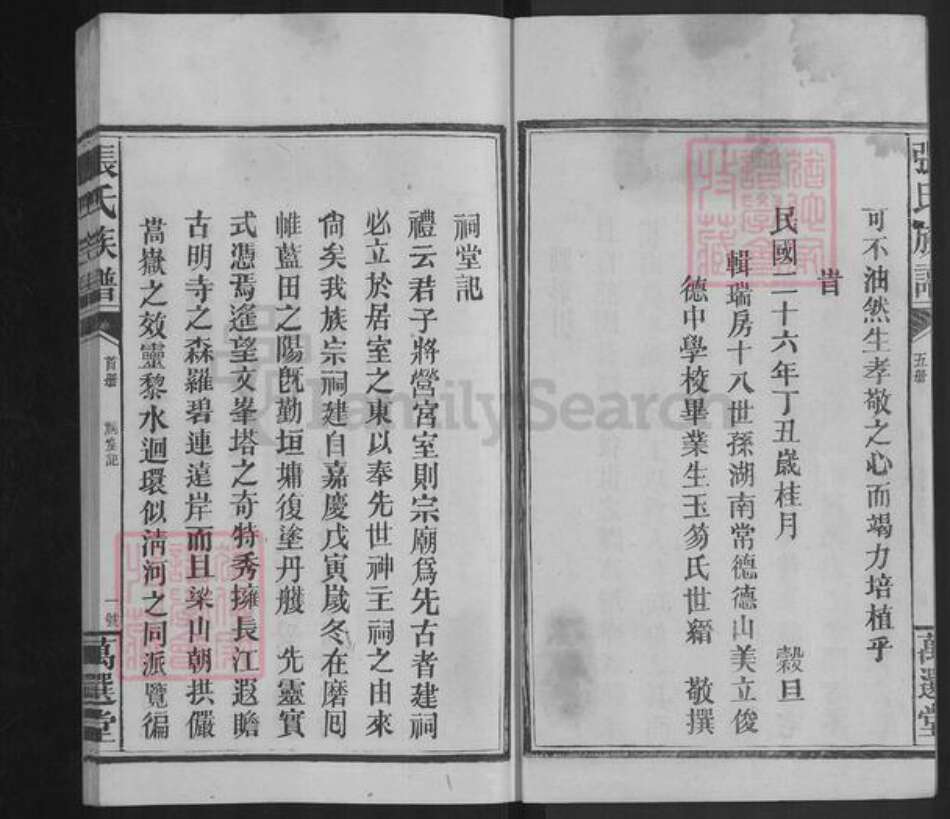 張氏族譜
五冊
萬選堂
可不油然生孝敬之心而竭力培植乎
旹
民國二十六年丁丑歲桂月 穀旦
輯瑞房十八世孫湖南常德德山美立俊
德中學校畢業生玉笏氏世縉 敬撰
祠堂記
禮云君子將營宮室則宗廟爲先古者建祠
必立於居室之東以奉先世神主祠之由來
尙矣我族宗祠建自嘉慶戊寅歲冬在磨囘
帷藍田之陽旣勤垣墉復塗丹雘 先靈實
式憑焉遙望文峯塔之奇特秀擁長江遐瞻
古明寺之森羅碧連遠岸而且梁山朝拱儼
嵩嶽之效靈黎水迴環似淸河之同派覽徧
張氏族譜
首冊
祠堂記
一號
萬選堂
FamilySearch